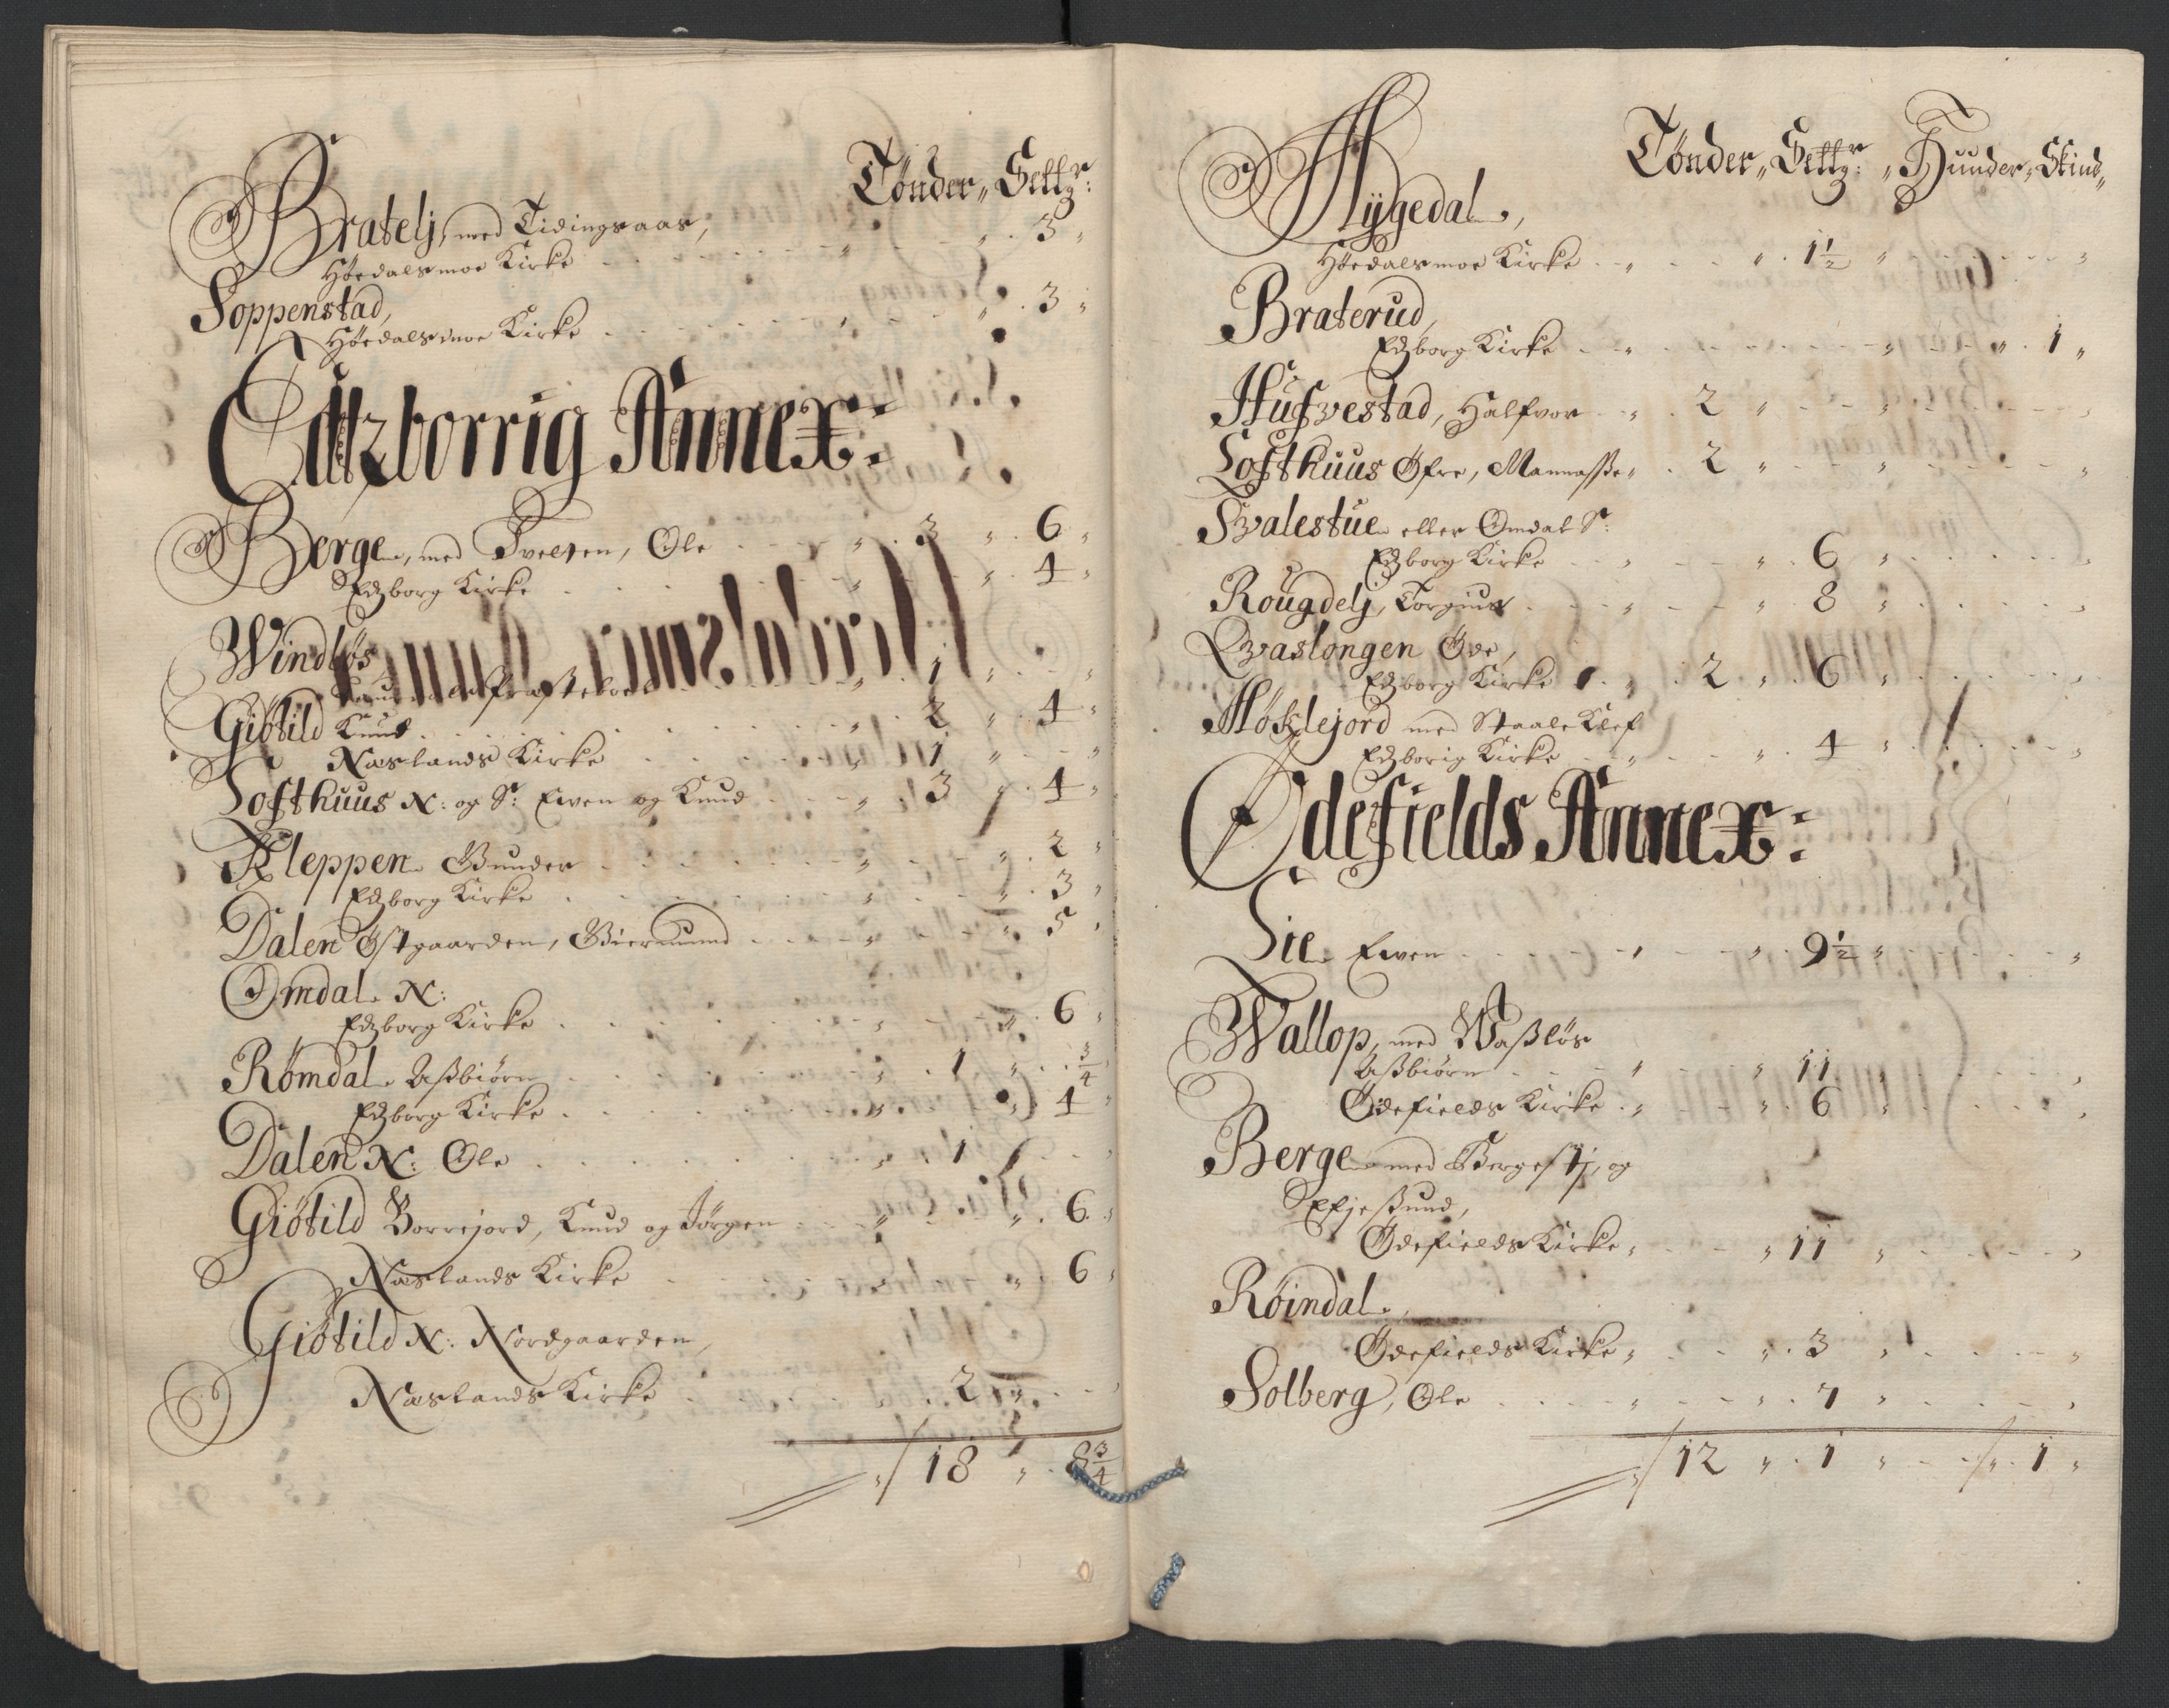 Tønder„ Settgr:
Bratelj, med Tidingsaas,
Høedalsmoe Kirke „ „ 3 „
Soppenstad,
Høedalsmoe Kirke „ „ 3 „
Eidtzborrig Annex:
Berge, med Tvelsen, Ole „ 3 „ 6 „
Edzborg Kirke „ „ 4 „
Windløs
„ 1 „ „
Giøtild Knud „ 2 „ 4 „
Næslands Kirke „ 1 „ „
Lofthuus N: og Sr: Even og Knud „ 3 „ 4 „
Kleppen Gunder „ „ 2 „
Edzborg Kirke „ „ 3 „
Dalen Østgaarden, Giermund „ „ 5 „
Omdal N:
Edzborg Kirke „ „ 6 „
Rømdal Aßbiørn „ 1 „ 3/4
Edzborg Kirke „ „ 4 „
Dalen N: Ole „ 1 „
Giøtild Borrejord, Knud og Jørgen „ „ 6 „
Næslands Kirke „ „ 6 „
Giøtild N: Nordgaarden,
Næslands Kirke „ 2 „
„ 18 „ 8 3/4
Tønder„ Settgr: „ Huuder„ Skind„
Høedalsmoe Kirke „ „ 1 1/2 „ „
Braterud,
Edzborg Kirke „ „ „ 1 „
Hufvestad, Halfvor „ 2 „ „ „
Lofthuus Øfre, Mannasse „ 2 „ „ „
Svalestue eller Omdal Sr:
Edzborg Kirke „ „ 6 „ „
Rougdelj, Torgius „ „ 8 „ „
Qvaslongen Øve,
Edzborg Kirke „ 2 „ 6 „ „
Høsklejord med Staale Klef
Edzborig Kirke „ „ 4 „ „
Ødefields Annex:
Lie Even „ „ 9 1/2 „ „
Wallop, med Waßløs
Aßbiørn „ „ 11 „ „
Ødefields Kirke „ „ 6 „ „
Berge med Bergestj, og
Ødefields Kirke „ „ 11 „ „
Røindal,
Ødefields Kirke „ „ 3 „ „
Solberg, Ole „ „ 7 „ „
„ 12 „ 1 „ „ 1 „